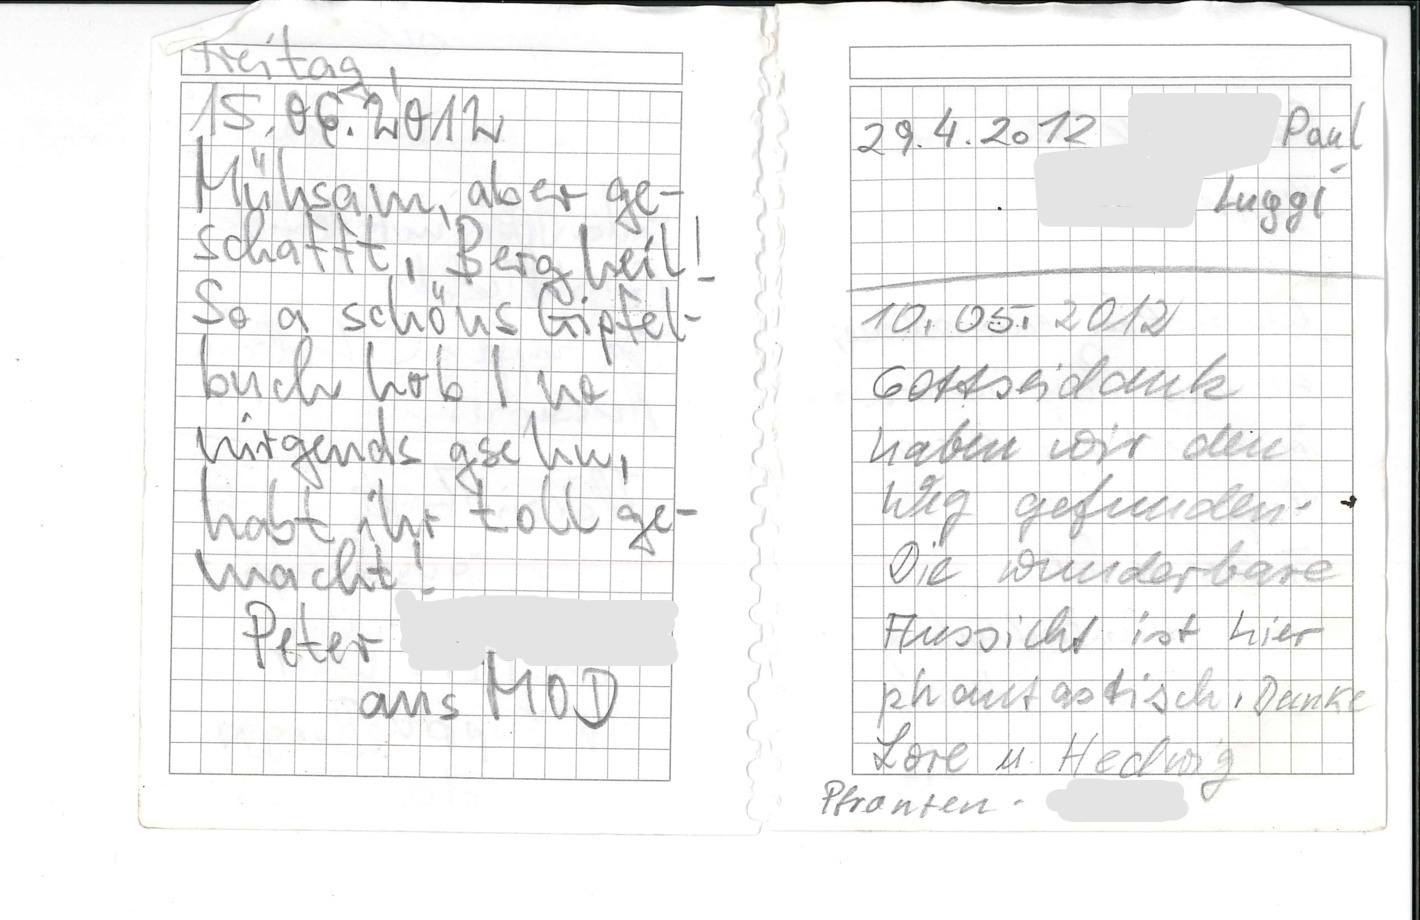 Freitag,
15.06.2012
Mühsam, aber ge-
schafft, Berg heil!
So a schöns Gipfel-
buch hob I no
nirgends gsehn,
habt ihr toll ge-
macht!
Peter
aus MOD
29.4.2012 Paul
Luggi
10.05.2012
Gottseidank
haben wir den
Weg gefunden.
Die wunderbare
Aussicht ist hier
phantastisch. Danke
Lore u. Hedwig
Pfronten.